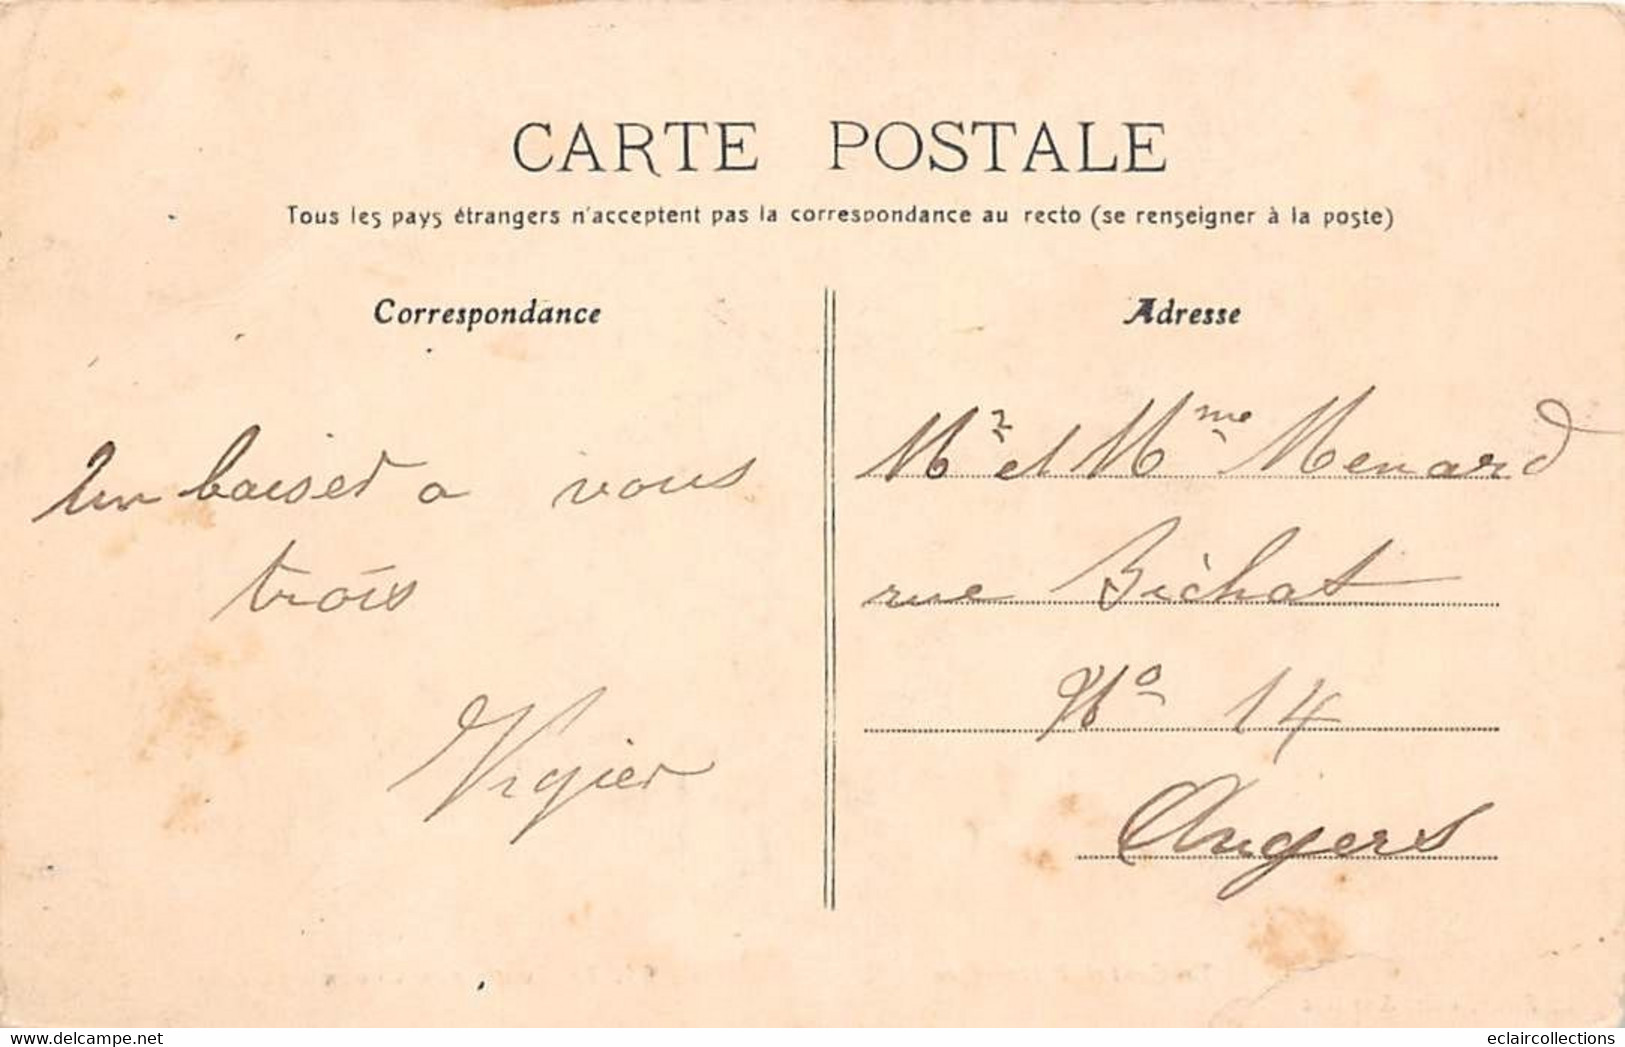 CARTE POSTALE
Tous les pays étrangers n'acceptent pas la correspondance au recto (se renseigner à la poste)
Correspondance
Un baiser a vous
trois
Vigier
Adresse
Mr et Mme Menard
rue Bichat
No 14
Angers
eclaircollections